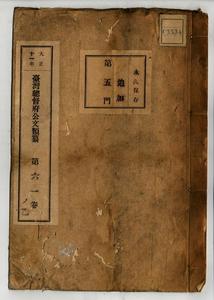 大正
十一年
臺灣總督府公文類纂
第六一卷
ノ一
永久保存
追加
第五門